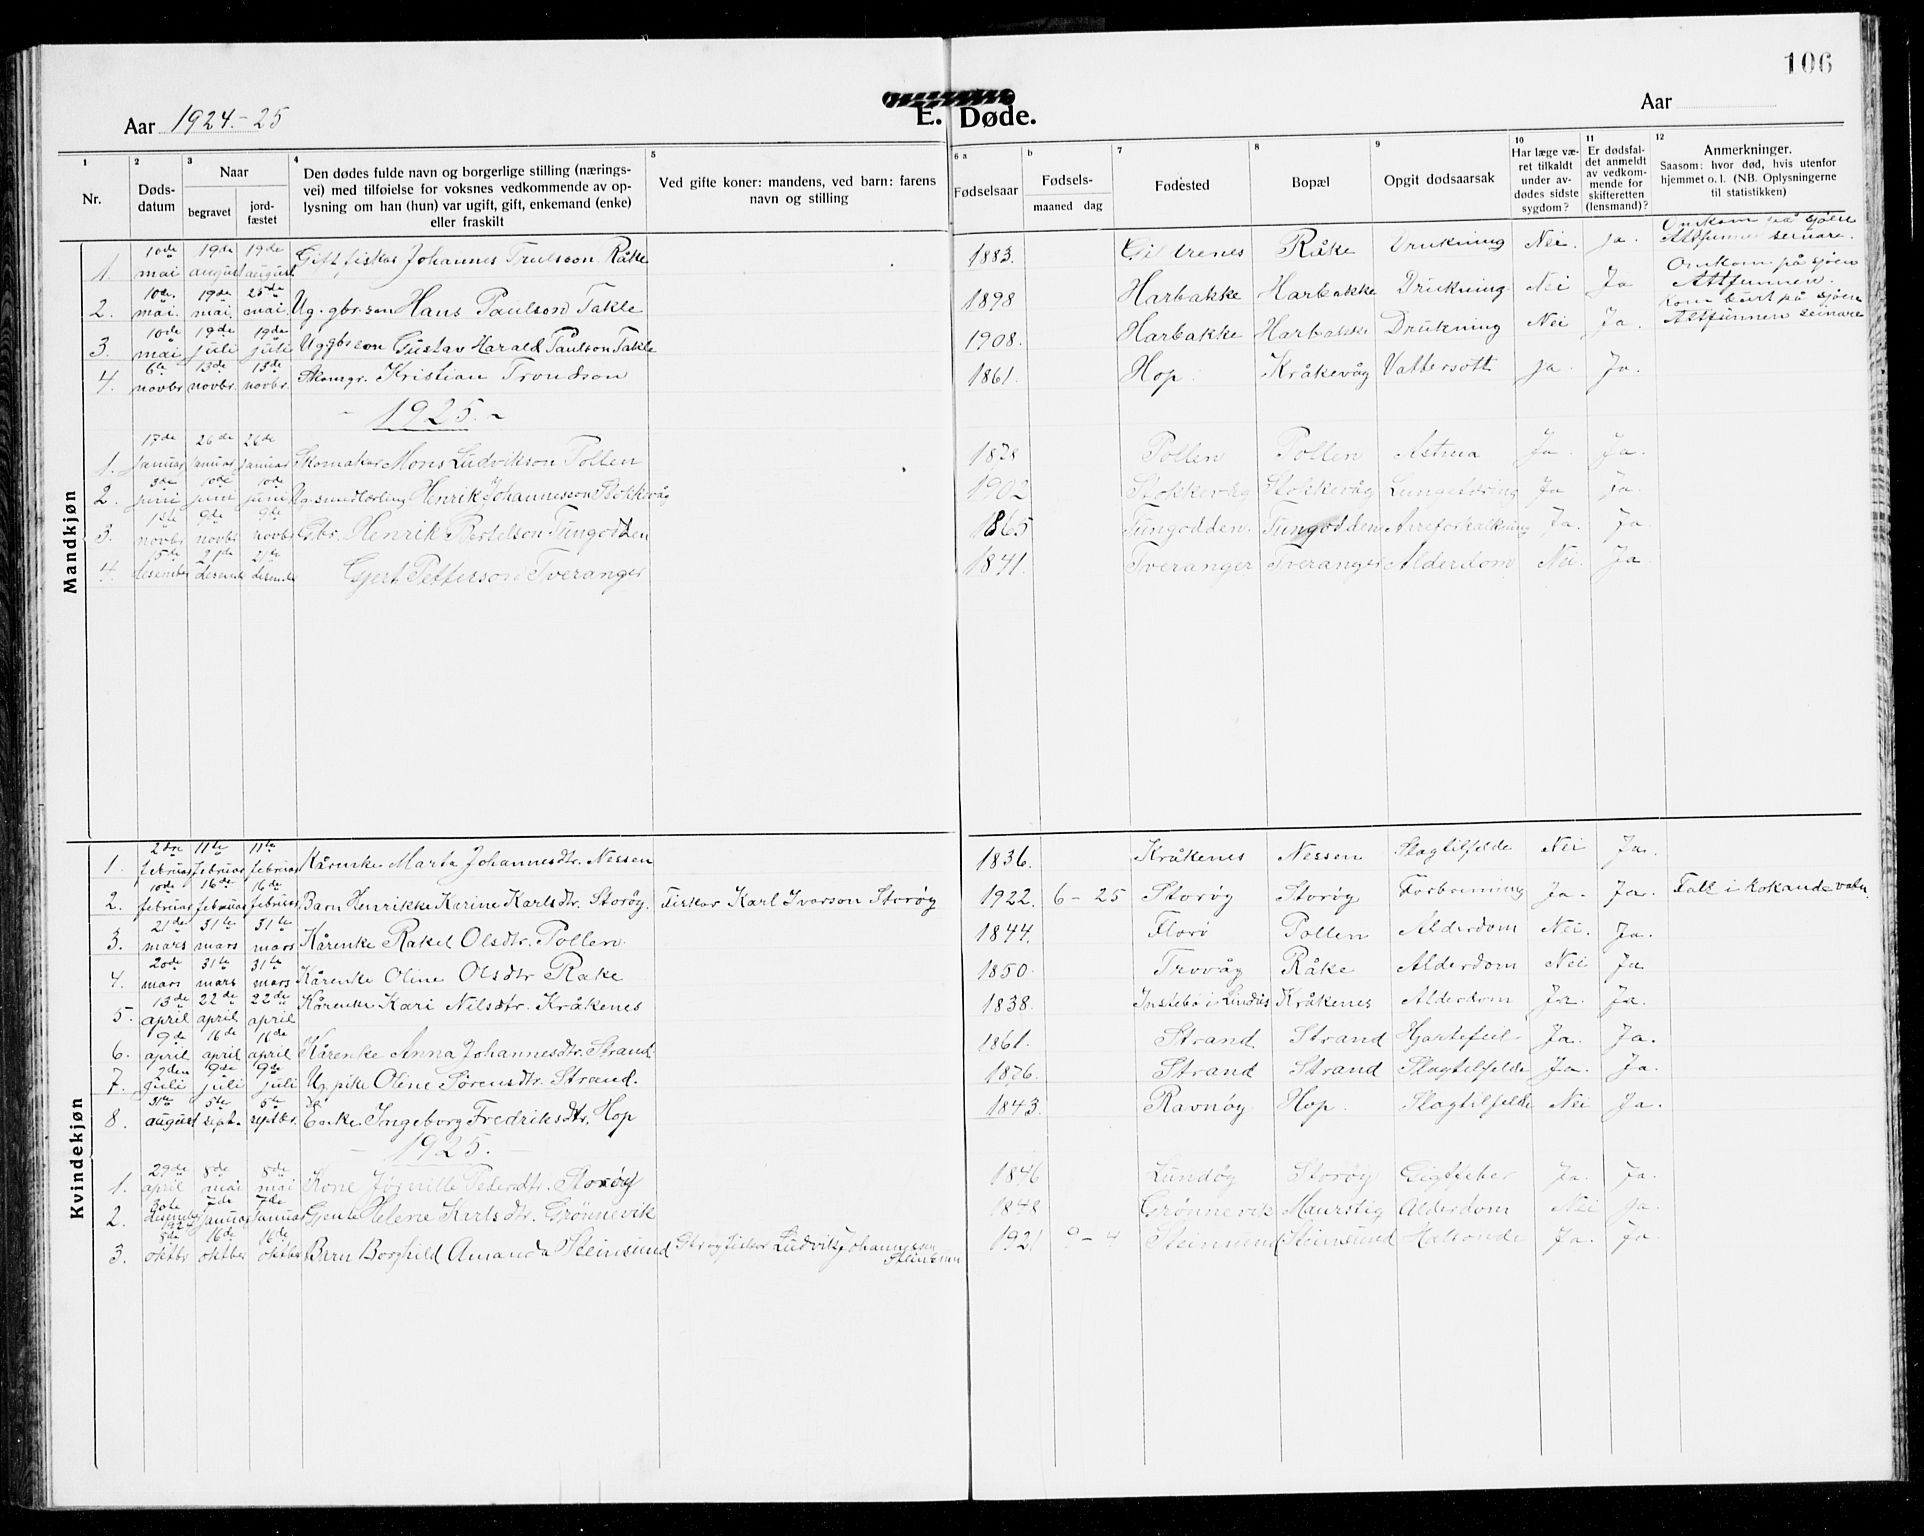 106
Aar 1924.-25
E. Døde.
Aar
1 Nr.
2 Døds-datum
3 Naar begravet jord-fæstet
4 Den dødes fulde navn og borgerlige stilling (nærings-
vei) med tilføielse for voksnes vedkommende av op-
lysning om han (hun) var ugift, gift, enkemand (enke)
eller fraskilt
5 Ved gifte koner: mandens, ved barn: farens
navn og stilling
6 a Fødselsaar
b Fødsels-
maaned dag
7 Fødested
8 Bopæl
9 Opgit dødsaarsak
10 Har læge væ-
ret tilkaldt
under av-
dødes sidste
sygdom?
11 Er dødsfal-
det anmeldt
av vedkom-
mende for
skifteretten
(lensmand)?
12 Anmerkninger.
Saasom: hvor død, hvis utenfor
hjemmet o. l. (NB. Oplysningerne
til statistikken)
Mandkjøn
1. 10de mai 19de august 19de august Gift, fiskar Johannes Trulsson Råke 1883. Råke Drukning Nei. ja. Omkom på sjøen Attfunnen seinare.
2. 10de mai. 19de mai. 25de mai. Ug. gbr. son Hans Paulson Takle 1898 Harbakke Harbakke Drukning Nei Ja Omkom på sjøen Attfunnen.
3. 10de mai 19de juli 19de juli Ug gbr son Gustav Harald Paulson Takle 1908. Harbakke Harbakke Drukning Nei Ja. Kom burt på sjøen Attfunnen seinare
4. 6te novbr 13de novbr. 13de novbr. Kristian Trondson 1861. Hop. Kråkevåg Vattersott ja. Ja.
- 1925. -
1. 17de januar 26de januar 26de januar Skomakar Mons Ludvikson Pollen 1838 Pollen Pollen Astma Ja. Ja.
2. 3de juni 10de juni 10de juni Henrik Johannesson Stokkevåg 1902 Stokkevåg Stokkevåg Ja ja.
3. 1ste novbr 9de novbr 9de novbr Gbr. Henrik Bertelson Tungodden 1865 Tungodden. Tungodden Areforkalkning Ja. Ja.
4. 15de desember 21de desember 21de desember Gjert Petterson Tveranger 1841. Tveranger Tveranger Alderdom Nei. Ja.
Kvindekjøn
1. 2dre februar 11te februar 11te februar Kårenke Marta Johannesdtr. Nessen 1836. Kråkenes Nessen Slagtilfelde Nei Ja.
2. 10de februar 16de februar 16de februar Barn Henrikke Karine Karlsdtr. Storøy. Fiskar Karl Ivarson Storøy 1922. 6 - 25 Storøy Storøy Forbrenning Ja. Ja. Fall i kokande vatn.
3. 21de mars 31te mars 31te mars Kårenke Rakel Olsdtr. Pollen. 1844. Florø Pollen Alderdom Nei. Ja.
4. 20de mars 31te mars 31te mars Kårenke Oline Olsdtr Råke 1850. Trovåg Råke Alderdom Nei Ja
5. 13de april 22de april 22de april Kårenke Kari Nilsdtr. Kråkenes 1838. Instebø i Lindås Kråkenes Alderdom Ja. Ja.
6. 9de april 16de april 16de april Kårenke Anna Johannesdtr. Strand. 1861. Strand Strand Hjartefeil Ja. Ja.
7. 2den juli 9de juli 9de juli Ug. pike Oline Sørensdtr. Strand. 1876. Strand Strand Slagtilfelde Ja. Ja.
8. 31te august 5te sept. 5te septbr. Enke Ingeborg Fredriksdtr. Hop 1843. Ravnøy Hop. Slagtilfelde Nei Ja.
- 1925. -
1. 29de april 8de mai 8de mai Kone Pedersdtr. Storøy 1846 Lundøy Storøy Gigtfeber Ja. Ja.
2. 30te desember 1924 7de januar 7de januar Gjente Helene Karlsdtr. Grønnevik 1848 Grønnevik Maurstig Alderdom Nei ja.
3. 8de oktbr 16de oktber 16de oktber Barn Borghild Amanda Steinsund Fiskar Ludvik Johannessen Steinsund 1921 9 - 4 Steinsund Steinsund Ja. Ja.